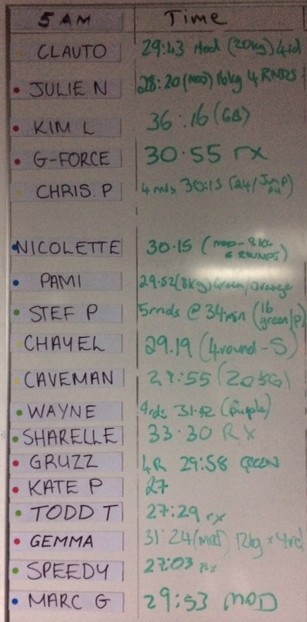 5 AM Time
CLAUTO 29:43 Mod (20kg) 4rd
JULIE N 28:20 (MOD) 16kg 4 RNDS
KIM L 36:16 (GB)
G-FORCE 30·55 rx
CHRIS.P 4 rnds 30:15 (24/Jump
NICOLETTE 30·15 (MOD-8KG
6 ROUNDS)
PAMI 29:52 (8kg) Green/orange
STEF P 5rnds @ 34min (16
green/P)
CHAYEL 29.19 (4round-S)
CAVEMAN :55 (20KG)
WAYNE 4rds 31:52 (purple)
SHARELLE 33·30 RX
GRUZZ 4R 29:58 GREEN
KATE P 27
TODD T 27:29 rx
GEMMA 31:24 (mod) 12kg x 4rd
SPEEDY 27:03 rx
MARC G 29:53 MOD